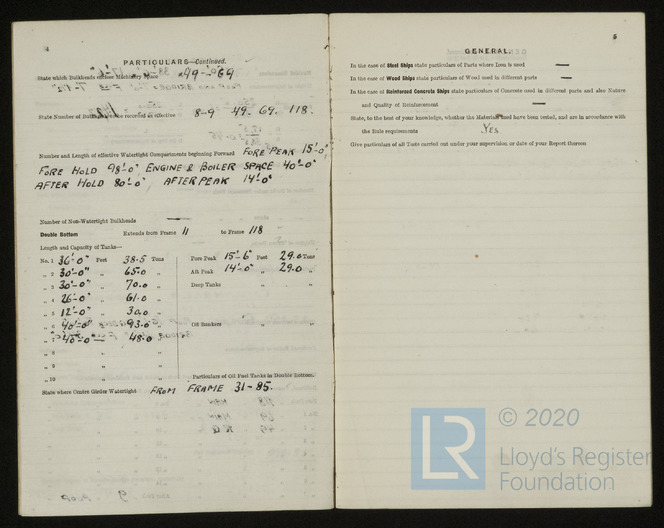 4
PARTICULARS—Continued.
State which Bulkheads enclose Machinery Space 49 - 69
State Number of Bulkheads to be recorded as effective 8-9 49. 69. 118.
Number and Length of effective Watertight Compartments beginning Forward FORE PEAK 15'-0"
FORE HOLD 98'-0" ENGINE & BOILER SPACE 40'-0"
AFTER HOLD 80'-0", AFTER PEAK 14'-0"
Number of Non-Watertight Bulkheads —
Double Bottom Extends from Frame 11 to Frame 118
Length and Capacity of Tanks—
No. 1 36'-0" Feet 38.5 Tons
„ 2 30'-0" „ 65.0 „
„ 3 30'-0" „ 70.0 „
„ 4 26'-0" „ 61.0 „
„ 5 12'-0" „ 30.0 „
„ 6 40'-0" „ 93.0 „
„ 7 40'-0" 48.0 „
„ 8 „ „
„ 9 „ „
„ 10 „ „
Fore Peak 15'-6" Feet 29.0 Tons
Aft Peak 14'-0" „ 29.0 „
Deep Tanks „ „
Oil Bunkers „ „
Particulars of Oil Fuel Tanks in Double Bottom.
State where Centre Girder Watertight FROM FRAME 31-85.
5
GENERAL.
In the case of Steel Ships state particulars of Parts where Iron is used —
In the case of Wood Ships state particulars of Wood used in different parts —
In the case of Reinforced Concrete Ships state particulars of Concrete used in different parts and also Nature
and Quality of Reinforcement —
State, to the best of your knowledge, whether the Materials used have been tested, and are in accordance with
the Rule requirements Yes
Give particulars of all Tests carried out under your supervision or date of your Report thereon
LR
© 2020
Lloyd's Register
Foundation